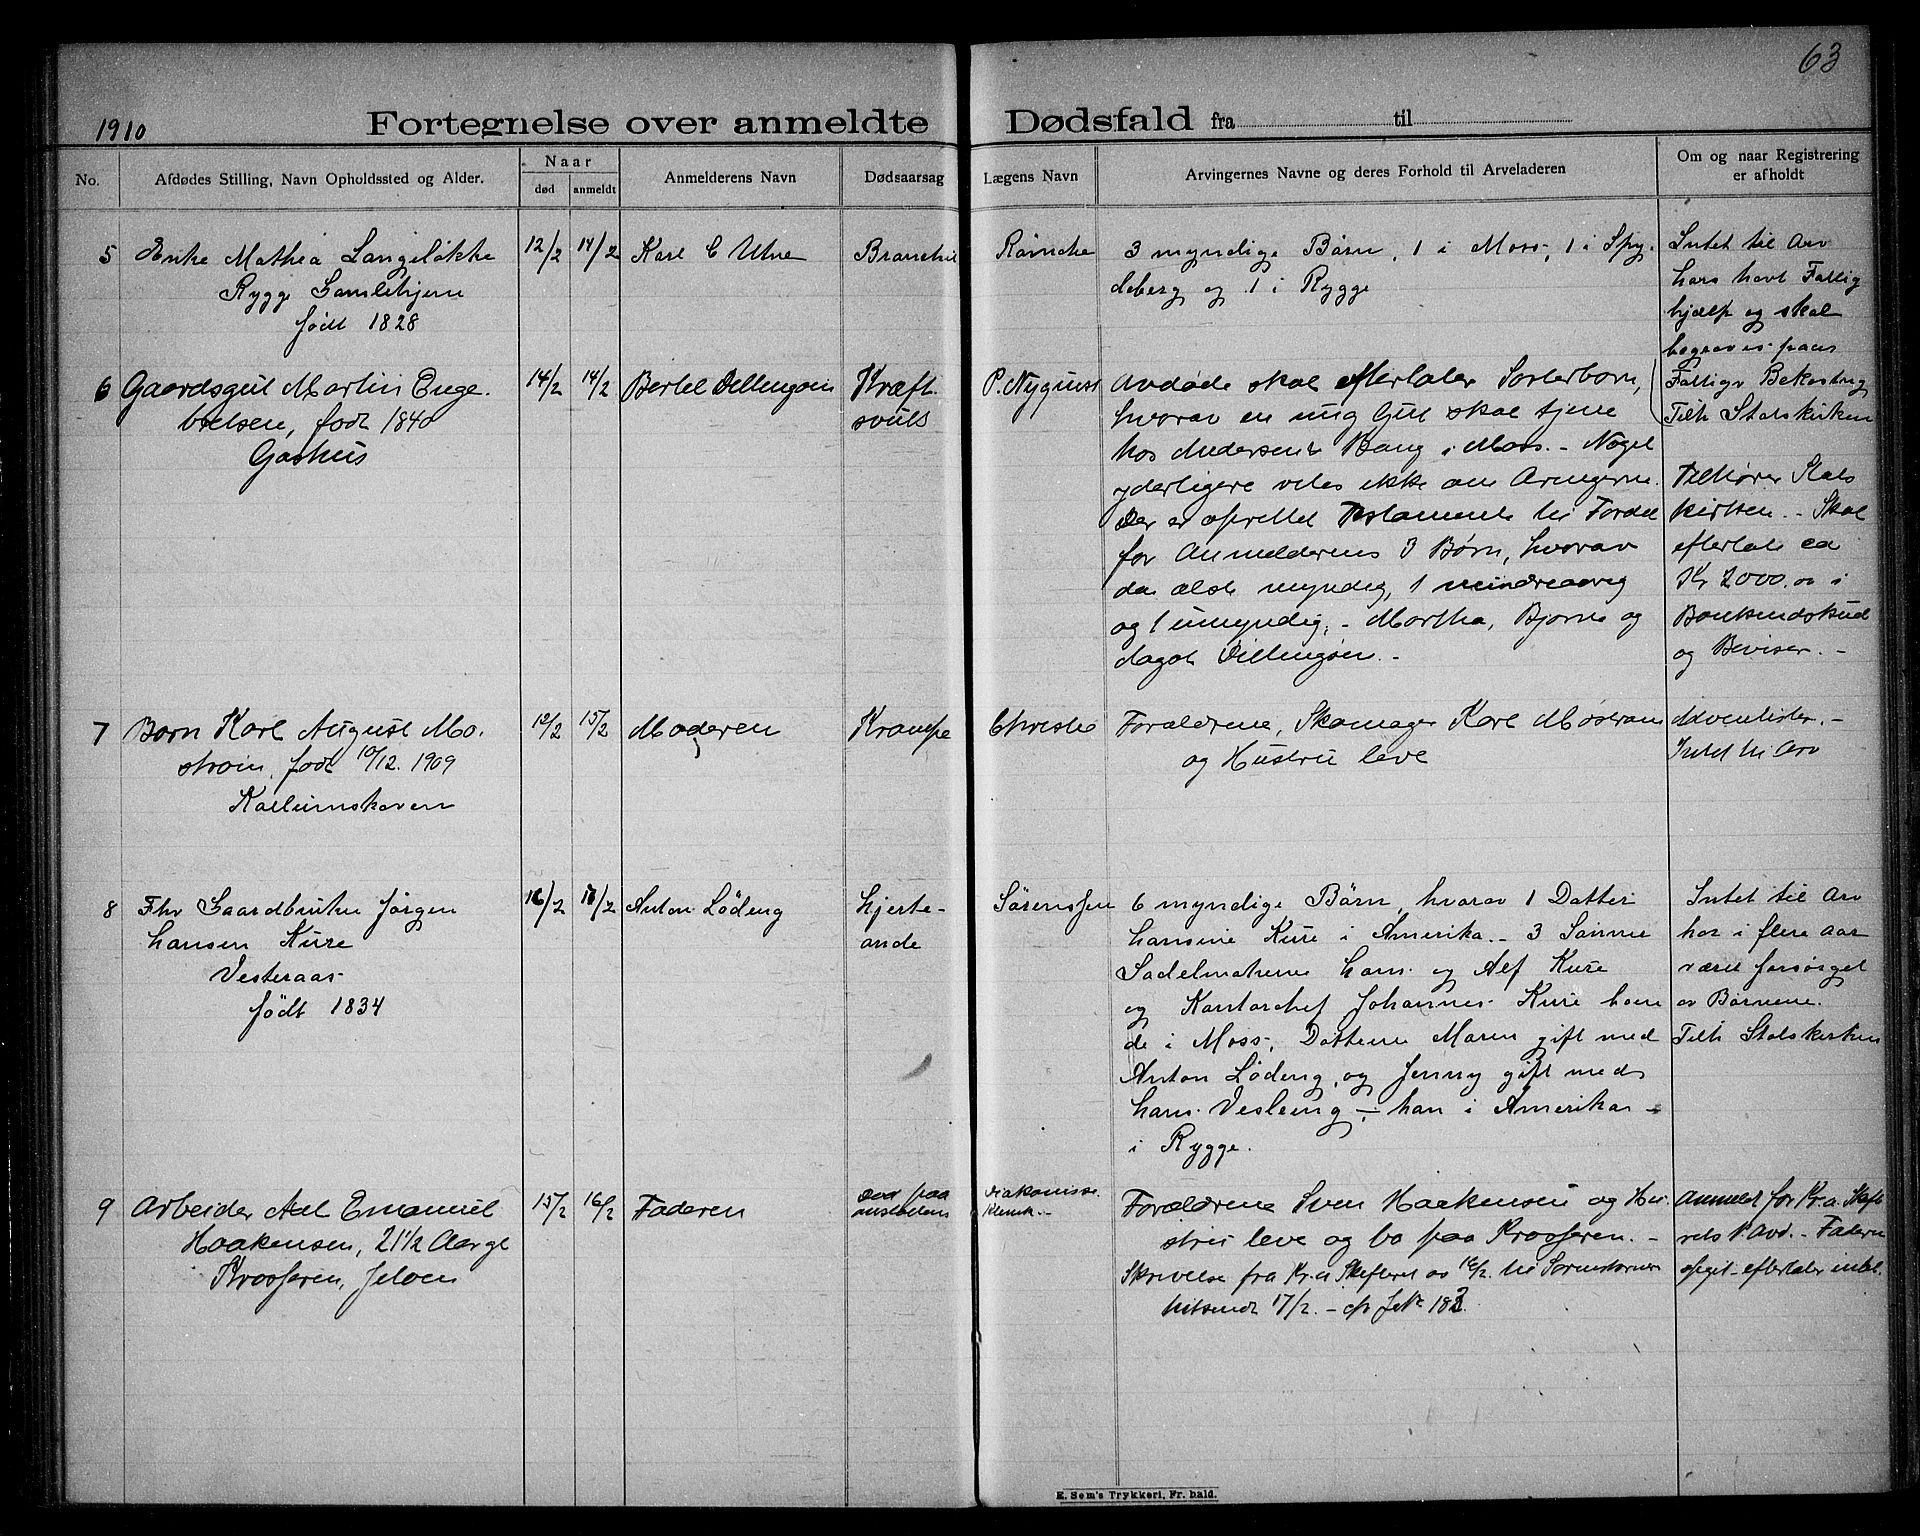 63
1910 Fortegnelse over anmeldte Dødsfald fra til
No.
Afdødes Stilling, Navn Opholdssted og Alder.
Naar
død anmeldt
Anmelderens Navn
Dødsaarsag
Lægens Navn
Arvingernes Navne og deres Forhold til Arveladeren
Om og naar Registrering
er afholdt
5 Enke Mathea Langeløkke
Rygge Gamlehjem
født 1828
12/2 14/2
Karl C Utne
Rømcke
3 myndige Børn, 1 i Moss, 1 i Spy-
deberg og 1 i Rygge
Intet til Arv
har havt Fattig
hjælp og skal
begraves paa
Fattigv Bekostning
Tilh Statskirken
6 Gaardsgut Martin Enge-
bretsen, født 1840
Gashus
14/2 14/2
Bertel Dillingøen
Kræft-
svulst
P. Nyquist
Avdøde skal efterlater Søsterbørn,
hvorav en ung Gut skal tjene
hos Andersen Bang i Moss. - Noget
yderligere vites ikke om Arvingerne.
Der er oprettet Testamente til Fordel
for Anmelderens 3 Børn, hvorav
da ælste myndig, 1 mindreaarig
og 1 umyndig, - Martha, Bjarne og
Dagot Dillingøen. -
Tilhører Stats
kirken. - Skal
efterlate ca
Kr 2000.00 i
Bankindskud
og Beviser. -
7 Barn Karl August Mo-
strøm, født 10/12. 1909
Kallumskoven
12/2 15/2
Moderen
Krampe
Christie
Forældrene, Skomager Karl Mostrøm
og Hustru leve
Adventister. -
Intet til Arv
8 Fhv Gaardbruker Jørgen
Hansen Kure
Vesteraas
født 1834
16/2 16/2
Anton Løding
Hjerte-
onde
Sørenssen
6 myndige Børn, hvorav 1 Datter
Hansine Kure i Amerika. - 3 Sønner
Sadelmakerne Hans og Alf Kure
og Kontorchef Johannes Kure boen
de i Moss, Døttrene Maren gift med
Anton Løding, og Jenny gift med
Hans Vesleng - han i Amerika -
i Rygge.
Intet til Arv
har i flere Aar
været forsørget
av Børnene.
Tilh Statskirken
9 Arbeider Axel Emanuel
Haakensen, 21 1/2 Aar gl
Krosseren, Jeløen
15/2 16/2
Faderen
Død paa
anstalten
Diakonisse-
klinik. -
Forældrene Sven Haakensen og Hu-
stru leve og bo paa Krosseren. -
Skrivelse fra Kr.a Skifteret av 16/2. til
hitsendt 17/2. - cfr JNr 183.
Anmeldt for Kr.a. Skifte-
rets 1. Avd. - Faderen
opgit - efterlater intet.
E. Sem's Trykkeri, Fr.hald.